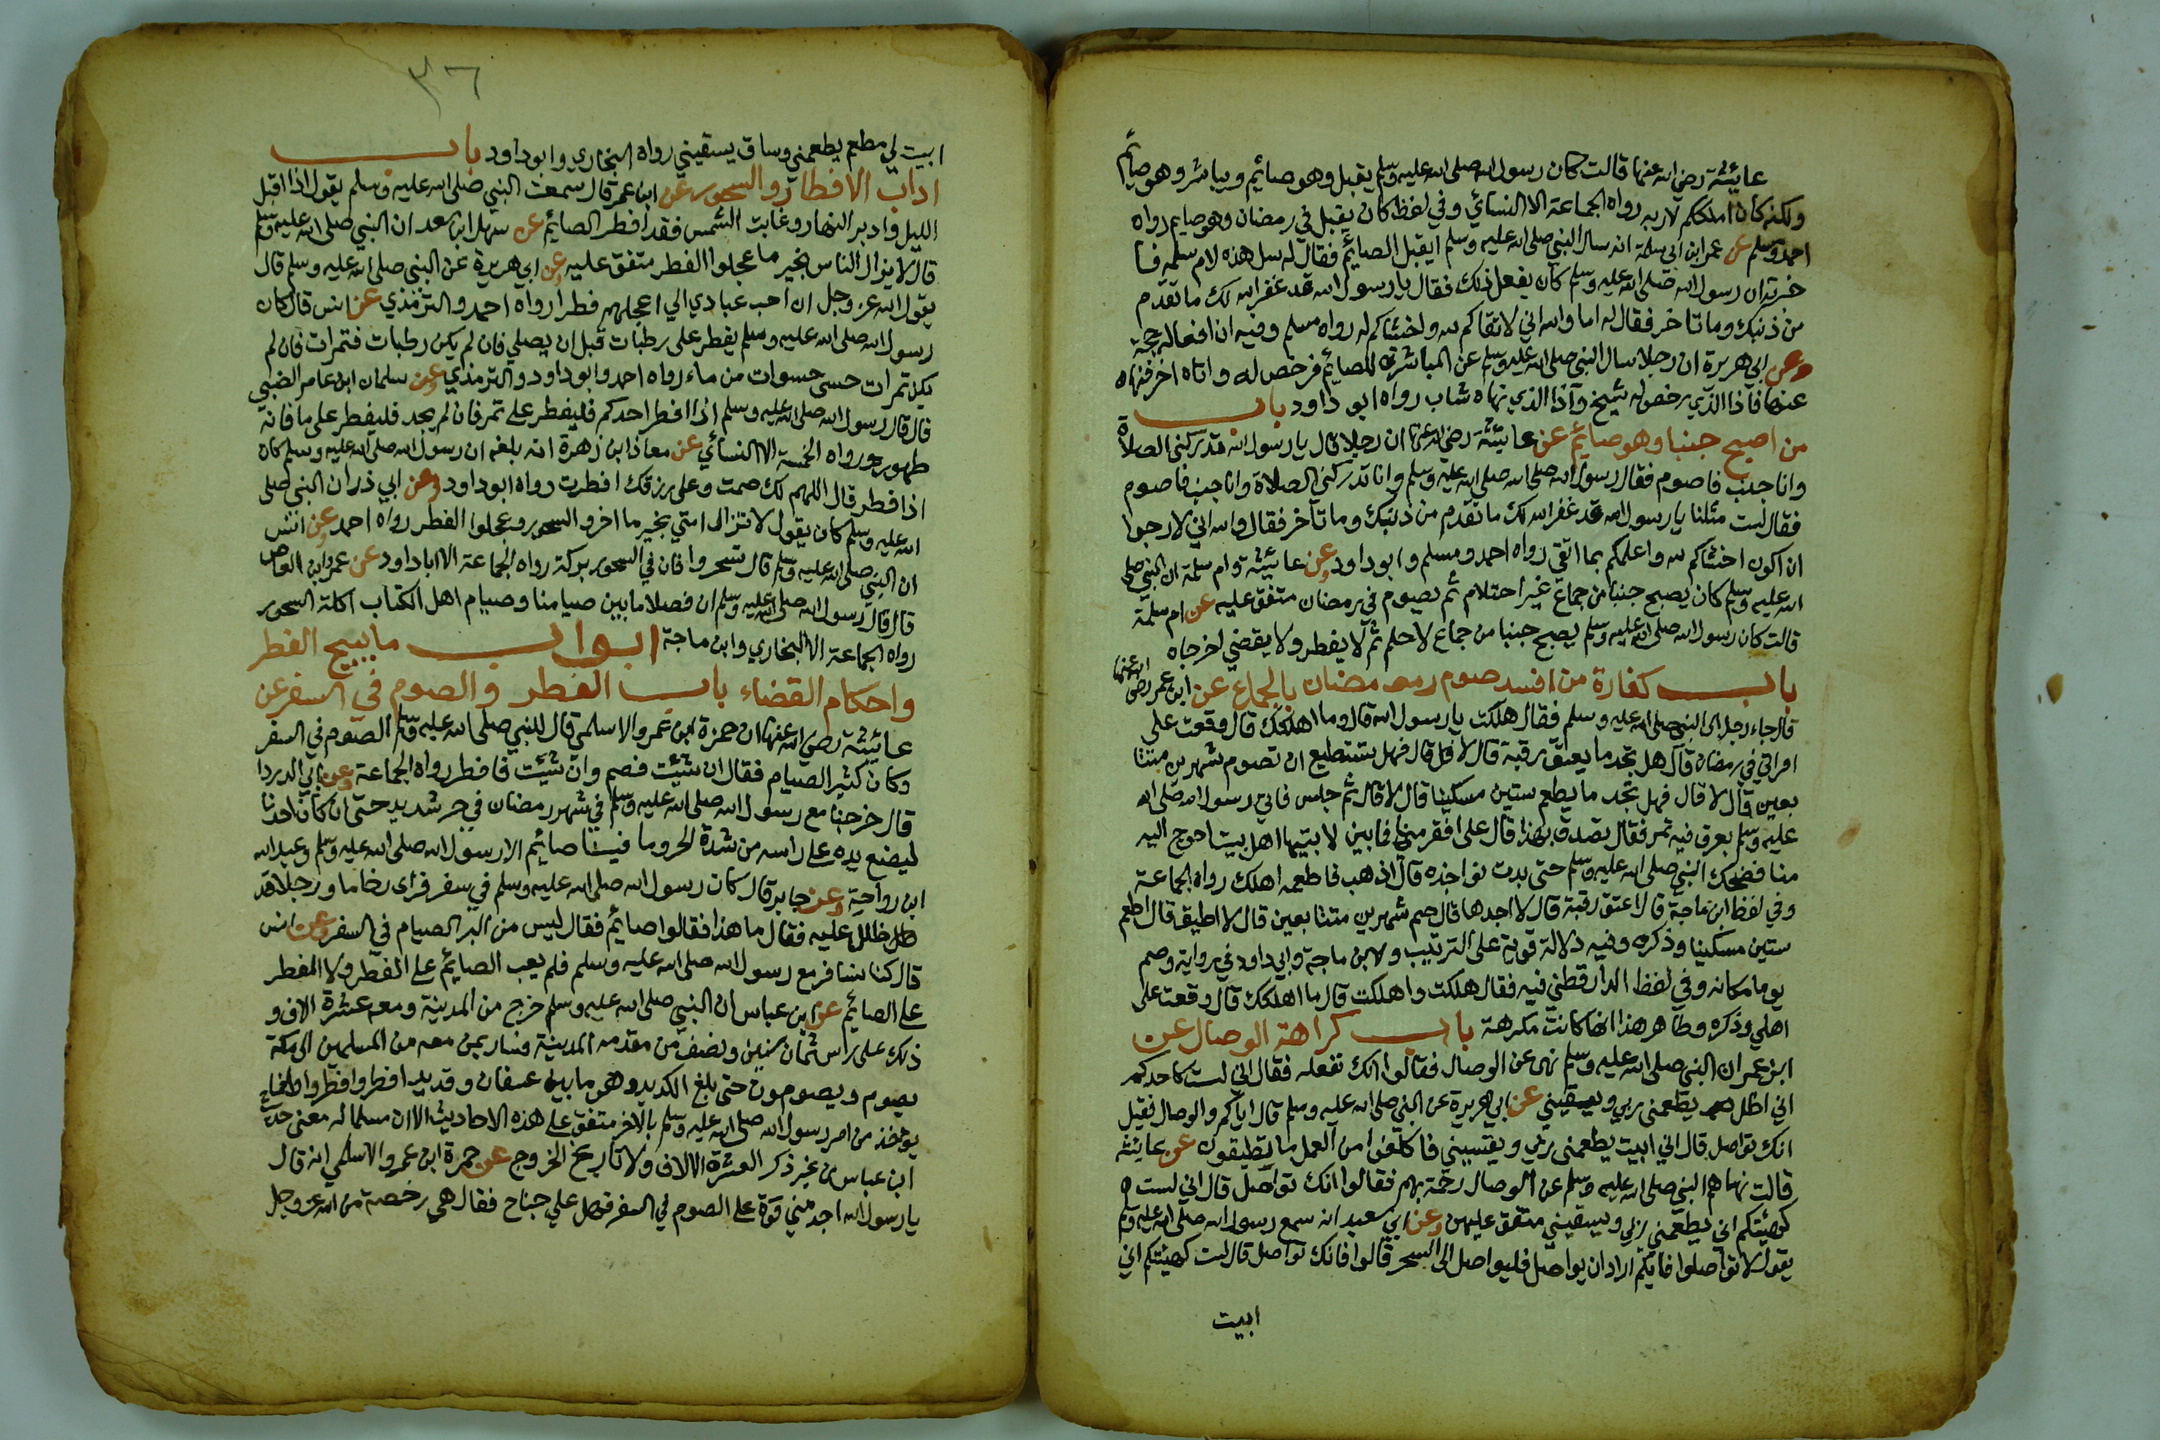 عائيشة رضي الله عنها قالت كان رسول الله صلى الله عليه وسلم يقبل وهو صايم ويباشر وهو صايم
ولكنه كان املككم لاربه رواه الجماعة الا النسائي وفي لفظ كان يقبل في رمضان وهو صايم رواه
احمد ومسلم عن عمر ابن ابي سلمة انه سال النبي صلى الله عليه وسلم ايقبل الصايم فقال له سل هذه لام سلمه فا
خبرته ان رسول الله صلى الله عليه وسلم كان يفعل ذلك فقال يا رسول الله قد غفر الله لك ما تقدم
من ذنبك وما تاخر فقال له اما والله اني لاتقاكم لله واخشاكم له رواه مسلم وفيه ان افعاله حجة
وعن ابي هريرة ان رجلا سال النبي صلى الله عليه وسلم عن المباشرة للصايم فرخص له واتاه اخر فنهاه
عنها فاذا الذي رخص له شيخ واذا الذي نهاه شاب رواه ابو داود باب
من اصبح جنبا وهو صايم عن عايشة رضي الله عنها ان رجلا قال يا رسول الله تدركني الصلاة
وانا جنب فاصوم فقال رسول الله صلى الله صلى الله عليه وسلم وانا تدركني الصلاة وانا جنب فاصوم
فقال لست مثلنا يا رسول الله قد غفر الله لك ما تقدم من ذنبك وما تاخر فقال والله اني لارجوا
ان اكون اخشاكم لله واعلمكم بما اتقي رواه احمد ومسلم وابو داود وعن عايشة وام سلمة ان النبي صلى
الله عليه وسلم كان يصبح جنبا من جماع غير احتلام ثم يصوم في رمضان متفق عليه عن ام سلمة
قالت كان رسول الله صلى الله عليه وسلم يصبح جنبا من جماع لا حلم ثم لا يفطر ولا يقضي اخرجاه
باب كفارة من افسد صوم رمضان بالجماع عن ابن عمر رضي الله عنها
قال جاء رجل الى النبي صلى الله عليه وسلم فقال هلكت يا رسول الله قال وما اهلكك قال وقعت على
امراتي في رمضان قال هل تجد ما يعتق رقبة قال لا قال فهل تستطيع ان تصوم شهرين متتا
بعين قال لا قال فهل تجد ما يطعم ستين مسكينا قال لا قال ثم جلس فاتي رسول الله صلى الله
عليه وسلم بعرق فيه تمر فقال تصدق بهذا قال على افقر منا فما بين لابتيها اهل بيت احوج اليه
منا فضحك النبي صلى الله عليه وسلم حتى بدت نواجذه قال اذهب فاطعمه اهلك رواه الجماعة
وفي لفظ ابن ماجة قال اعتق رقبة قال لا اجدها قال صم شهرين متتابعين قال لا اطيق قال اطعم
ستين مسكينا وذكره وفيه دلالة قوية على الترتيب ولابن ماجة وابي داود في رواية وصم
يوما مكانه وفي لفظ الدارقطني فيه فقال هلكت واهلكت قال ما اهلكك قال وقعت على
اهلي وذكره وظاهر هذا انها كانت مكرهة باب كراهة الوصال عن
ابن عمر ان النبي صلى الله عليه وسلم نهى عن الوصال فقالوا انك تفعله فقال اني لست كاحدكم
اني اظل يطعمني ربي ويسقيني عن ابي هريرة عن النبي صلى الله عليه وسلم قال اياكم والوصال فقيل
انك تواصل قال اني ابيت يطعمني ربي ويقسيني فاكلفوا من العمل ما تطيقون عن عايشة
قالت نهاهم النبي صلى الله عليه وسلم عن الوصال رحمة بهم فقالوا انك تواصل قال اني لست
كهيئتكم اني يطعمني ربي ويسقيني متفق عليهن وعن ابي سعيد انه سمع رسول الله صلى الله عليه وسلم
يقول لا تواصلوا فايكم اراد ان يواصل فليواصل الى السحر قالوا فانك تواصل قال لست كهيئتكم اني
ابيت
٣٦
ابيت لي مطعم يطعمني وساق يسقيني رواه البخاري وابو داود باب
اداب الافطار والسحور عن ابن عمر قال سمعت النبي صلى الله عليه وسلم يقول اذا اقبل
الليل وادبر النهار وغابت الشمس فقد افطر الصايم عن سهل ابن سعد ان النبي صلى الله عليه وسلم
قال لا يزال الناس بخير ما عجلوا الفطر متفق عليه وعن ابي هريرة عن النبي صلى الله عليه وسلم قال
يقول الله عز وجل ان احب عبادي الي اعجلهم فطرا رواه احمد والترمذي عن انس قال كان
رسول الله صلى الله عليه وسلم يفطر على رطبات قبل ان يصلي فان لم يكن رطبات فتمرات فان لم
يكن تمرات حسى حسوات من ماء رواه احمد وابو داود والترمذي وعن سلمان ابن عامر الضبي
قال قال رسول الله صلى الله عليه وسلم اذا افطر احدكم فليفطر على تمر فان لم يجد فليفطر على ما فانه
طهور رواه الخمسة الا النسائي عن معاذ ابن زهرة انه بلغه ان رسول الله صلى الله عليه وسلم كان
اذا فطر قال اللهم لك صمت وعلى رزقك افطرت رواه ابو داود وعن ابي ذر ان النبي صلى
الله عليه وسلم كان يقول لا تزال امتي بخير ما اخروا السحور وعجلوا الفطر رواه احمد وعن انس
ان النبي صلى الله عليه وسلم قال تسحروا فان في السحور بركة رواه الجماعة الا ابا داود عن عمرو ابن العاص
قال قال رسول الله صلى الله عليه وسلم ان فصلا ما بين صيامنا وصيام اهل الكتاب اكلة السحور
رواه الجماعة الا البخاري وابن ماجة ابواب ما يبيح الفطر
واحكام القضاء باب الفطر والصوم في السفر عن
عائيشة رضي الله عنها ان حمزة ابن عمرو الاسلمي قال للنبي صلى الله عليه وسلم الصوم في السفر
وكان كثير الصيام فقال ان شئت فصم وان شيئت فافطر رواه الجماعة وعن ابي الدردا
قال خرجنا مع رسول الله صلى الله عليه وسلم في شهر رمضان في حر شديد حتى ان كان احدنا
ليضع يده على راسه من شدة الحر وما فينا صائيم الا رسول الله صلى الله عليه وسلم وعبد الله
ابن رواحة وعن جابر قال كان رسول الله صلى الله عليه وسلم في سفر فراى زحاما ورجلا قد
ظلل عليه فقال ما هذا فقالوا صائيم فقال ليس من البر الصيام في السفر وعن انس
قال كنا نسافر مع رسول الله صلى الله عليه وسلم فلم يعب الصائيم على المفطر ولا المفطر
على الصائيم عن ابن عباس ان النبي صلى الله عليه وسلم خرج من المدينة ومعه عشرة الاف و
ذلك على راس ثمان سنين ونصف من مقدمه المدينة فسار بمن معه من المسلمين الى مكة
يصوم ويصومون حتى بلغ الكديد وهو ما بين عسفان وقديد افطر وافطروا وانما
يوخذ من امر رسول الله صلى الله عليه وسلم بالاخر متفق على هذه الاحاديث الا ان مسلما له معنى حديث
ابن عباس من غير ذكر العشرة الالاف ولا تاريخ الخروج عن حمزة ابن عمرو الاسلمي انه قال
يا رسول الله اجد مني قوة على الصوم في السفر فهل علي جناح فقال هي رخصة من الله عز وجل